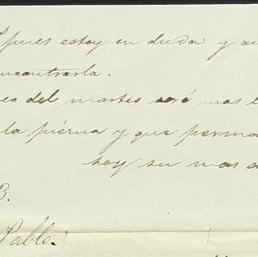 pues estoy en duda y
encontrarla.
eo del martes seré mas
la pierna y que perma
soy su mas a
3.
Pablo.